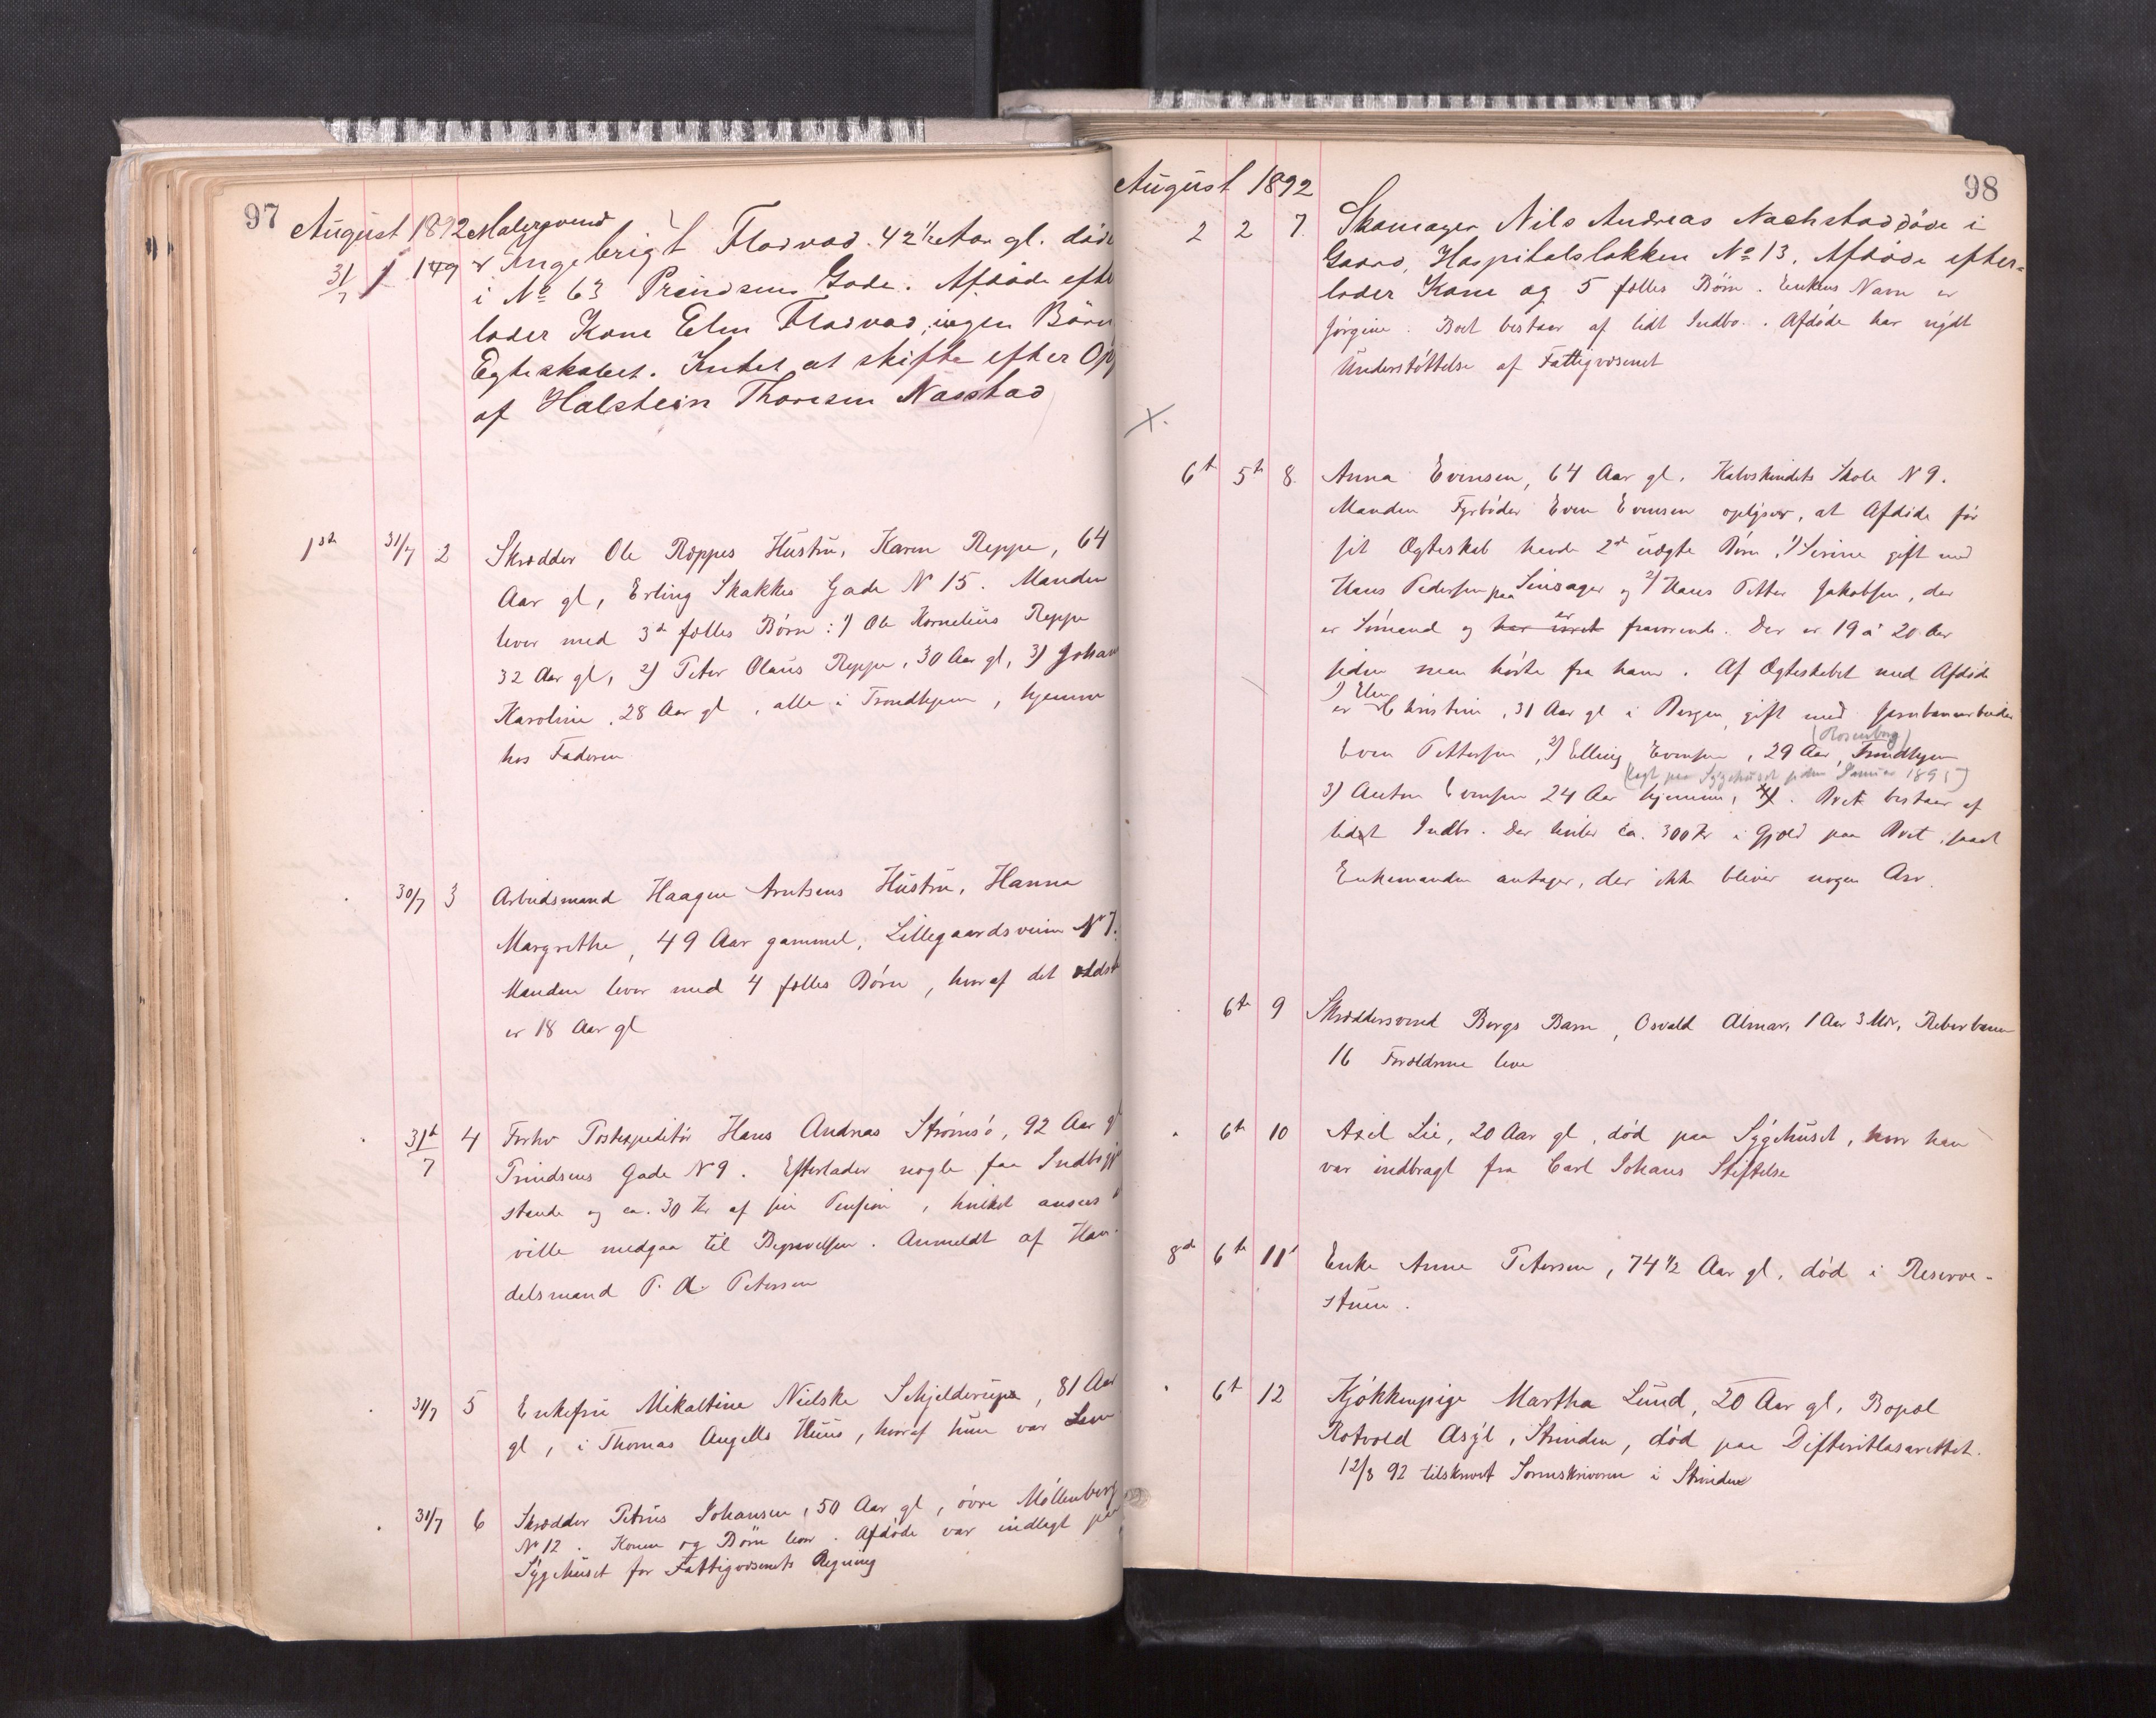 97
August 1892 Malersvend
31/7 1 149 Ingebrigt Fladvad. 42 1/2 Aar gl. døde
i No 63 Prindsens Gade. Afdøde efter
lader Kone Elen Fladvad, ingen Børn
Egteskabet. Intet at skifte efter Op
af Halstein Thoresen Næsstad
1ste 31/7 2 Skrædder Ole Reppes Hustru, Karen Reppe, 64
Aar gl, Erling Skakkes Gade N 15. Manden
lever med 3de fælles Børn: 1) Ole Kornelius Reppe
32 Aar gl, 2) Peter Olaus Reppe, 30 Aar gl, 3) Johan
Karoline, 28 Aar gl, alle i Trondhjem, hjemme
hos Faderen
30/7 3 Arbeidsmand Haagen Arntsens Hustru, Hanna
Margrethe, 49 Aar gammel, Lillegaardsveien No 7.
Manden lever med 4 fælles Børn, hvoraf det ældste
er 18 Aar gl
31te/7 4 Forhv Postexpeditør Hans Andreas Strømsø, 92 Aar gl
Prindsens Gade N 9. Efterlader nogle faa Indbogjen
stande og ca. 30 Kr af sin Pension, hvilket ansees
ville medgaa til Begravelsen. Anmeldt af Han-
delsmand P. A. Petersen
31/7 5 Enkefru Mikaltine Nielske Schjelderup, 81 Aar
gl, i Thomas Angells Huus, hvoraf hun var Lem
31/7 6 Skrædder Petrus Johansen, 50 Aar gl, øvre Møllenberg
No 12. Konen og Børn lever. Afdøde var indlagt paa
Sygehuset for Fattigvæsenets Regning
98
August 1892
2 2 7. Skomager Nils Andreas Nachstad døde i
Gaard, Hospitalsløkken No 13. Afdøde efter-
lader Kone og 5 fælles Børn. Enkens Navn er
Jørgine. Boet bestaar af lidt Indbo. Afdøde har nydt
Understøttelse af Fattigvæsenet
X.
6te 5te 8. Anna Evensen, 64 Aar gl. Kalvskindets Skole N 9.
Manden Fyrbøder Even Evensen oplyser, at Afdøde før
sit Ægteskab havde 2de uægte Børn, 1) Serine gift med
Hans Pedersen paa og 2) Hans Petter Jakobsen, der
er Sømand og har været er fraværende. Der er 19 à 20 Aar
siden man hørte fra ham. Af Ægteskabet med Afdøde
er 1) Elen Christine, 31 Aar gl i Bergen gift med Jernbanearbeider
Even Pettersen, 2) Elling Evensen, 29 Aar, Trondhjem (Rosenborg)
(lagt paa Sygehuset siden Januar 1895)
3) Anton Evensen 24 Aar hjemme, 4). Boet bestaar af
lidet Indbo. Der hviler ca. 300 Kr i Gjæld paa Boet, saa at
Enkemanden antager, der ikke bliver nogen Arv.
6te 9 Skræddersvend Bergs Barn, Osvald Almar, 1 Aar 3 Mdr, Reberbanen
16 Forældrene leve
6te 10 Axel Lie, 20 Aar gl, død paa Sygehuset, hvor han
var indbragt fra Carl Johans Stiftelse
8de 6te 11 Enke Anne Petersen, 74 1/2 Aar gl, død i Reserve-
stuen.
6te 12 Kjøkkenpige Martha Lund, 20 Aar gl, Bopæl
Rotvold Asyl, Strinden, død paa Difteritlasarettet.
12/8 92 tilskrevet Sorenskriveren i Strinden